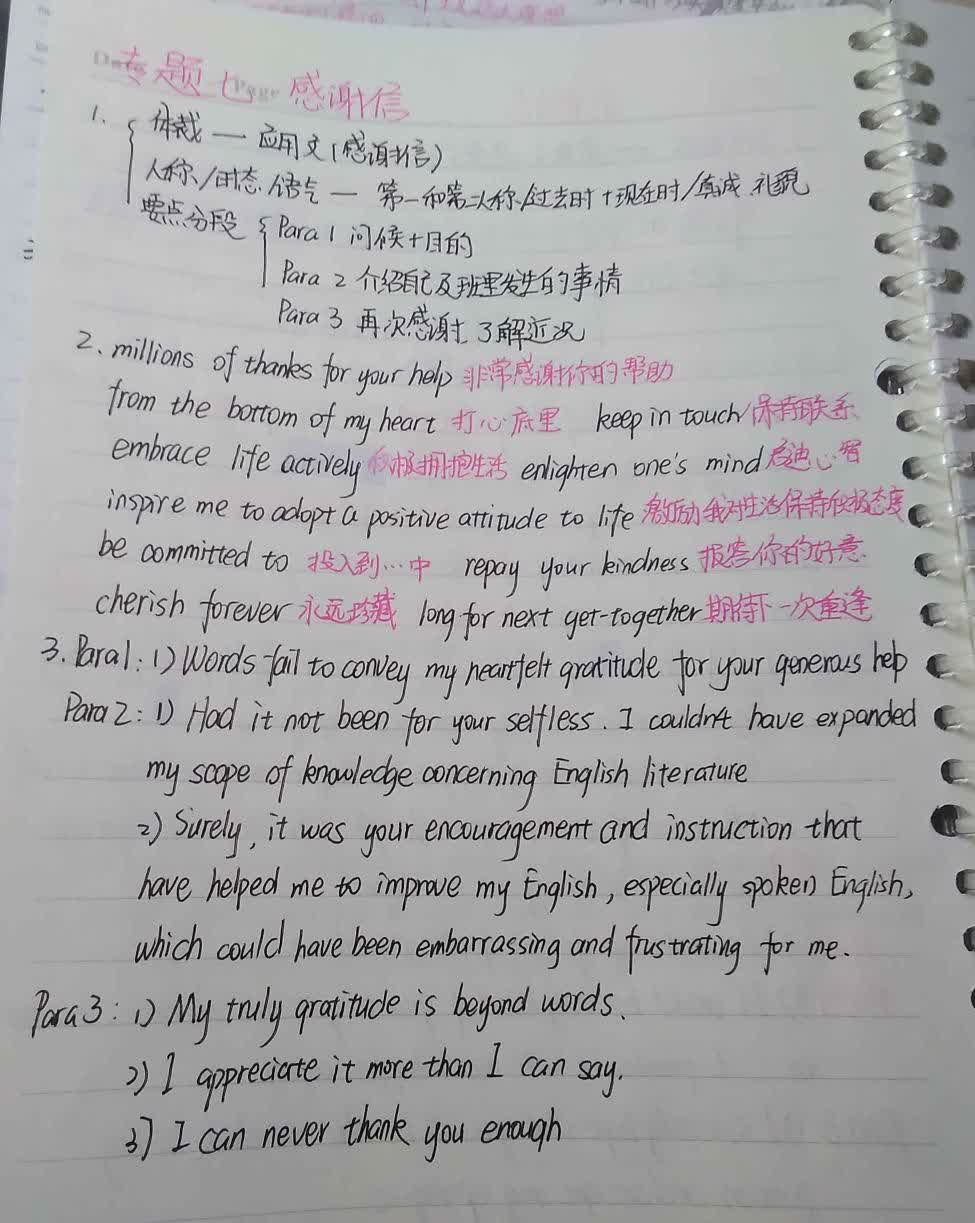 专题七 感谢信
1. 体裁 — 应用文(感谢信)
人称/时态/语气 — 第一和第二人称/过去时+现在时/真诚 礼貌
要点分段 Para 1 问候+目的
Para 2 介绍自己及班里发生的事情
Para 3 再次感谢 了解近况
2. millions of thanks for your help 非常感谢你的帮助
from the bottom of my heart 打心底里 keep in touch 保持联系
embrace life actively 积极拥抱生活 enlighten one's mind 启迪心智
inspire me to adopt a positive attitude to life 激励我对生活保持积极态度
be committed to 投入到…中 repay your kindness 报答你的好意
cherish forever 永远珍藏 long for next get-together 期待下一次重逢
3. Para1: 1) Words fail to convey my heartfelt gratitude for your generous help
Para 2: 1) Had it not been for your selfless. I couldn't have expanded
my scope of knowledge concerning English literature
2) Surely, it was your encouragement and instruction that
have helped me to improve my English, especially spoken English,
which could have been embarrassing and frustrating for me.
Para 3: 1) My truly gratitude is beyond words.
2) I appreciate it more than I can say.
3) I can never thank you enough